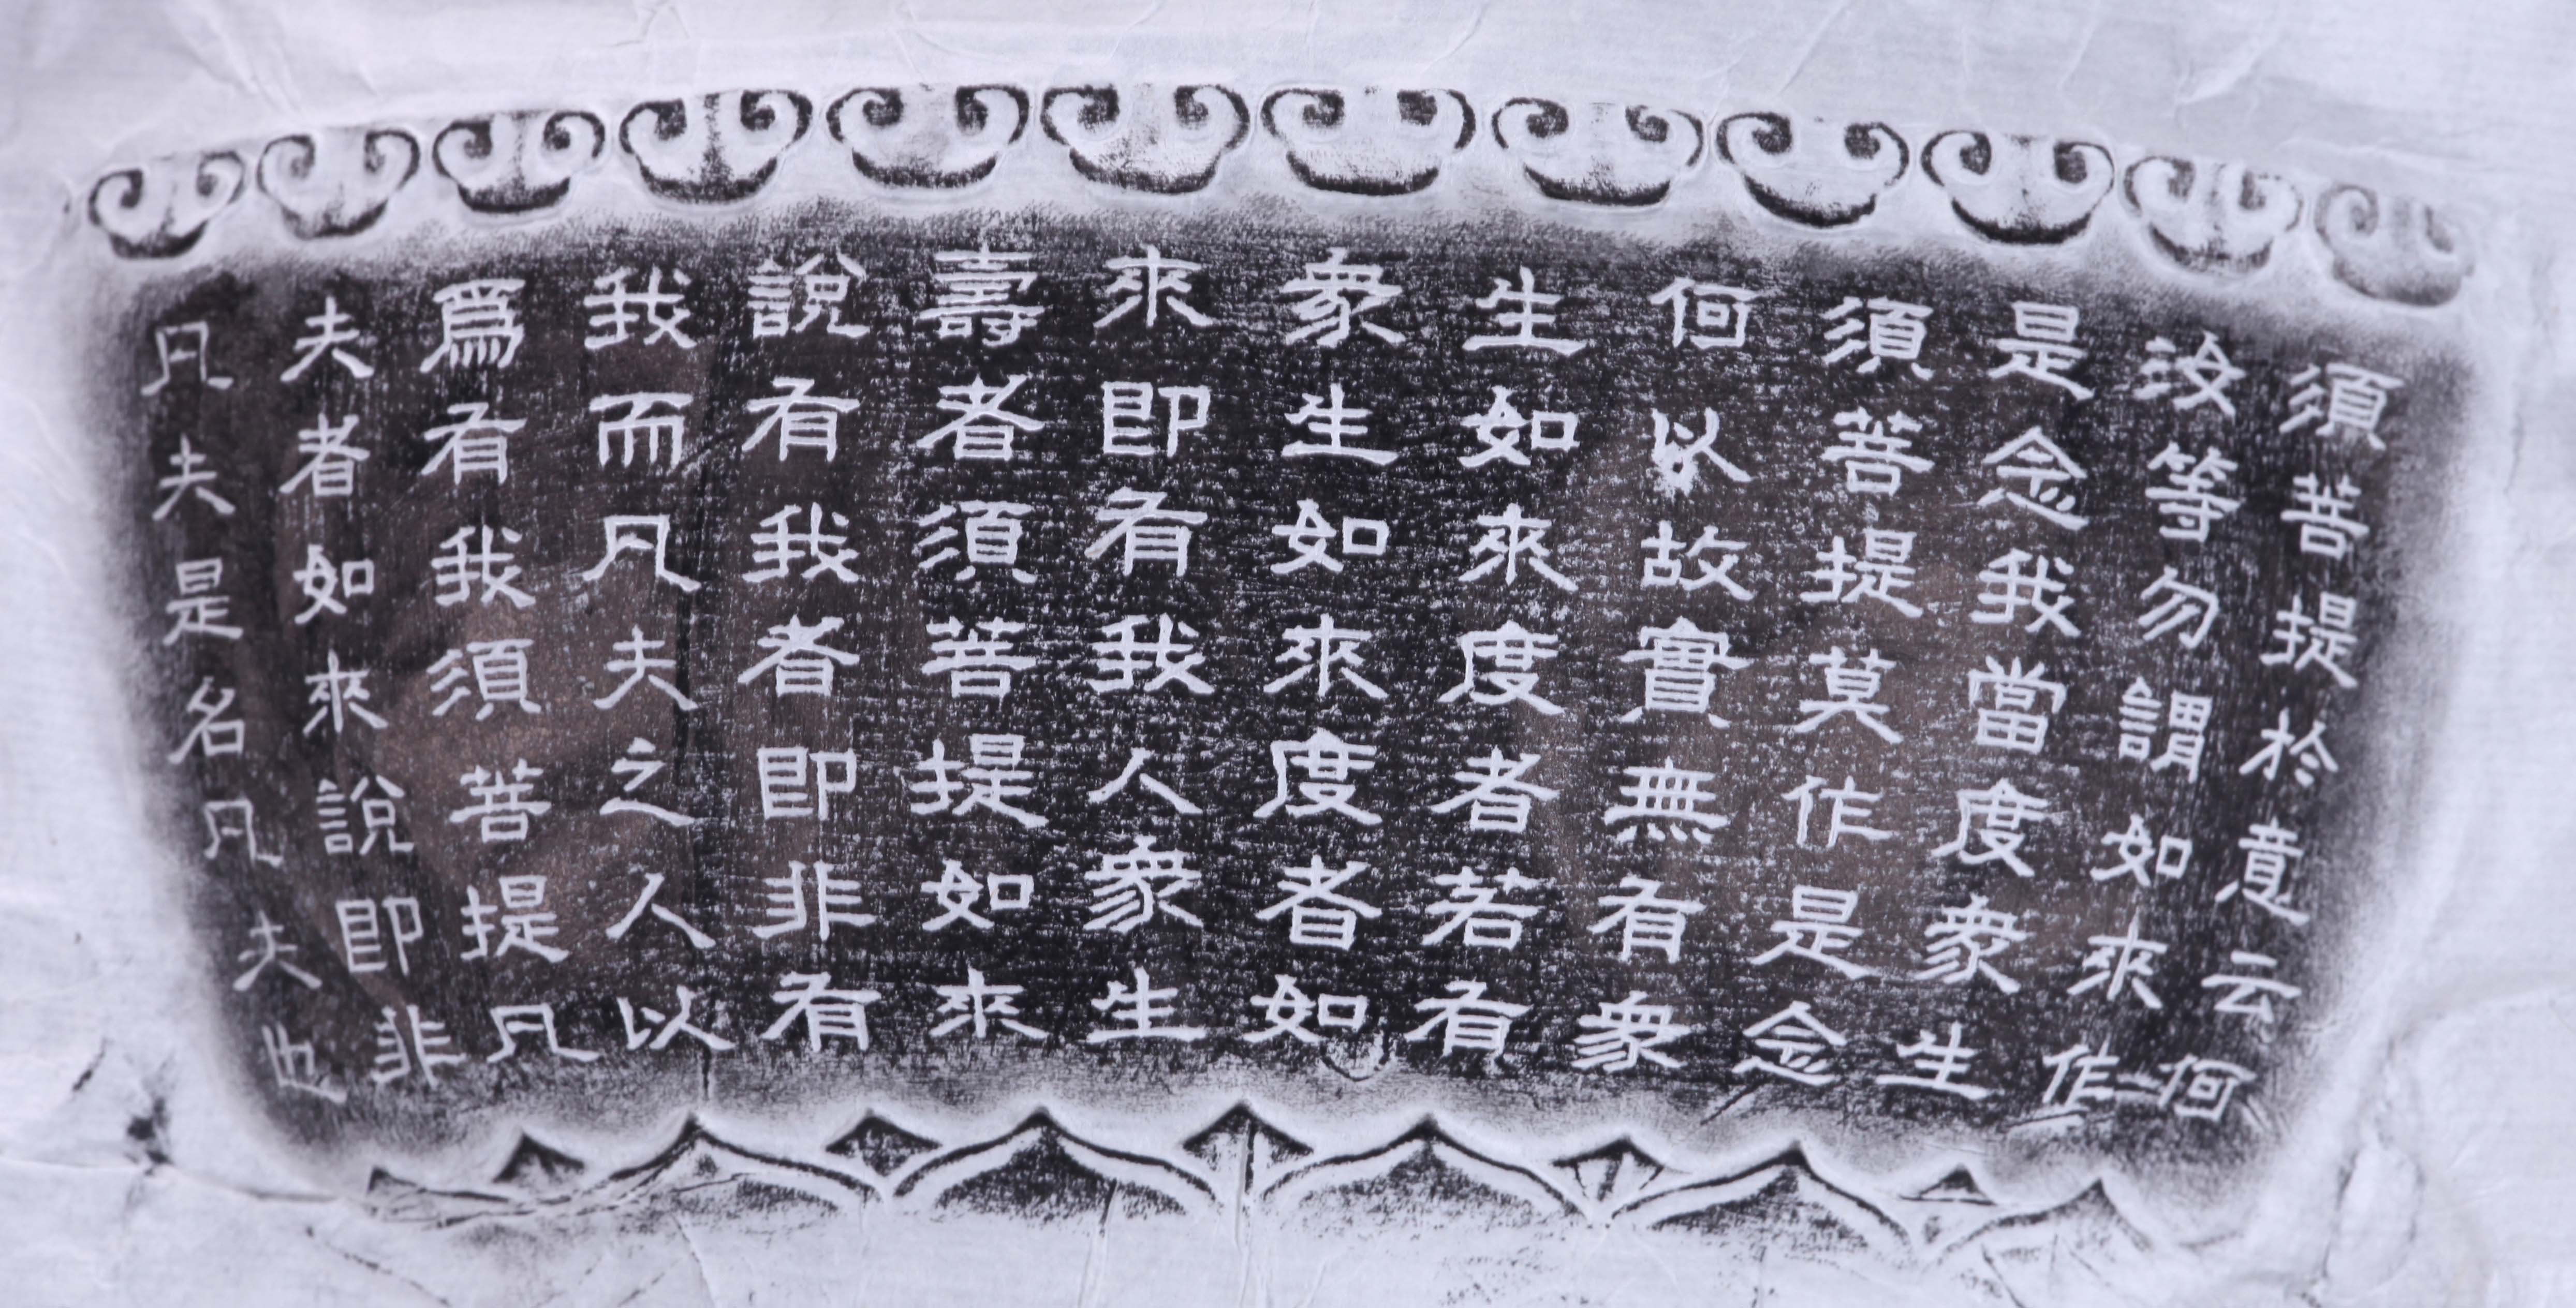 須菩提於意云何
汝等勿謂如來作
是念我當度衆生
須菩提莫作是念
何以故實無有衆
生如來度者若有
衆生如來度者如
來即有我人衆生
壽者須菩提如來
說有我者即非有
我而凡夫之人以
爲有我須菩提凡
夫者如來說即非
凡夫是名凡夫也